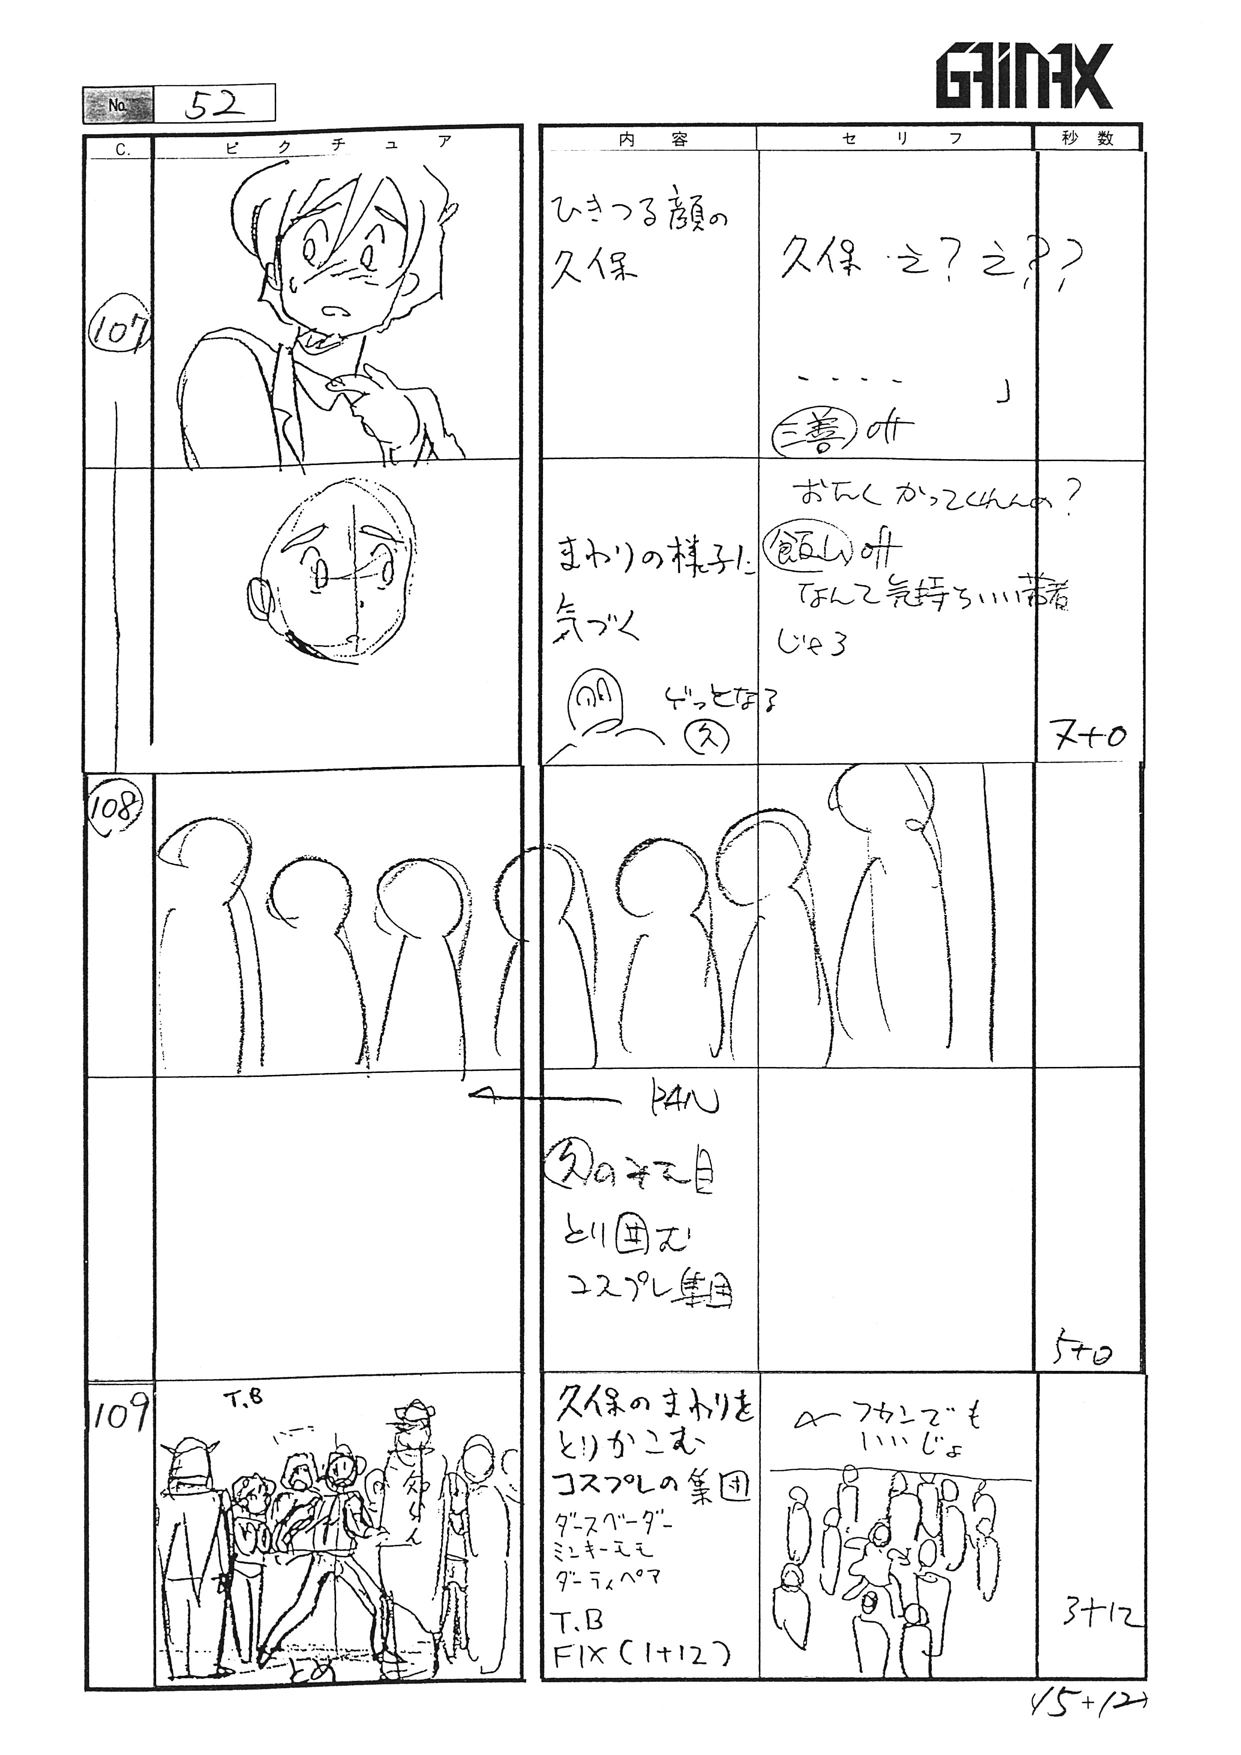 GAINAX
No. 52
C. ピクチュア 内容 セリフ 秒数
107
ひきつる顔の
久保
久保 え？え？？
・・・・ 」
三善 off
おたくかってくれんの？
まわりの様子に
気づく
飯山 off
なんて気持ちいい若者
じゃろ
ゲッとなる
久
7+0
108
PAN
久のみた目
とり囲む
コスプレ集団
5+0
109
T.B
久保のまわりを
とりかこむ
コスプレの集団
ダースベーダー
ミンキーモモ
ダーティペア
T.B
FIX (1+12)
フカンでも
いいじょ
とめ
3+12
(15+12)